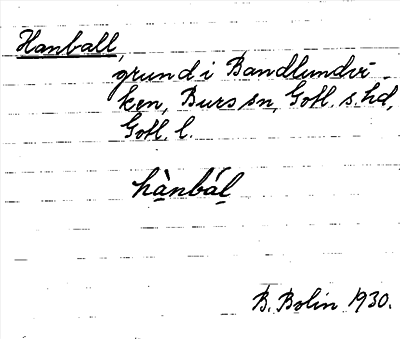 Hanball,
grund i Bandlundvi-
ken, Burs sn, Gotl. s. hd,
Gotl. l.
hà̱nbáḻ
B. Bolin 1930.